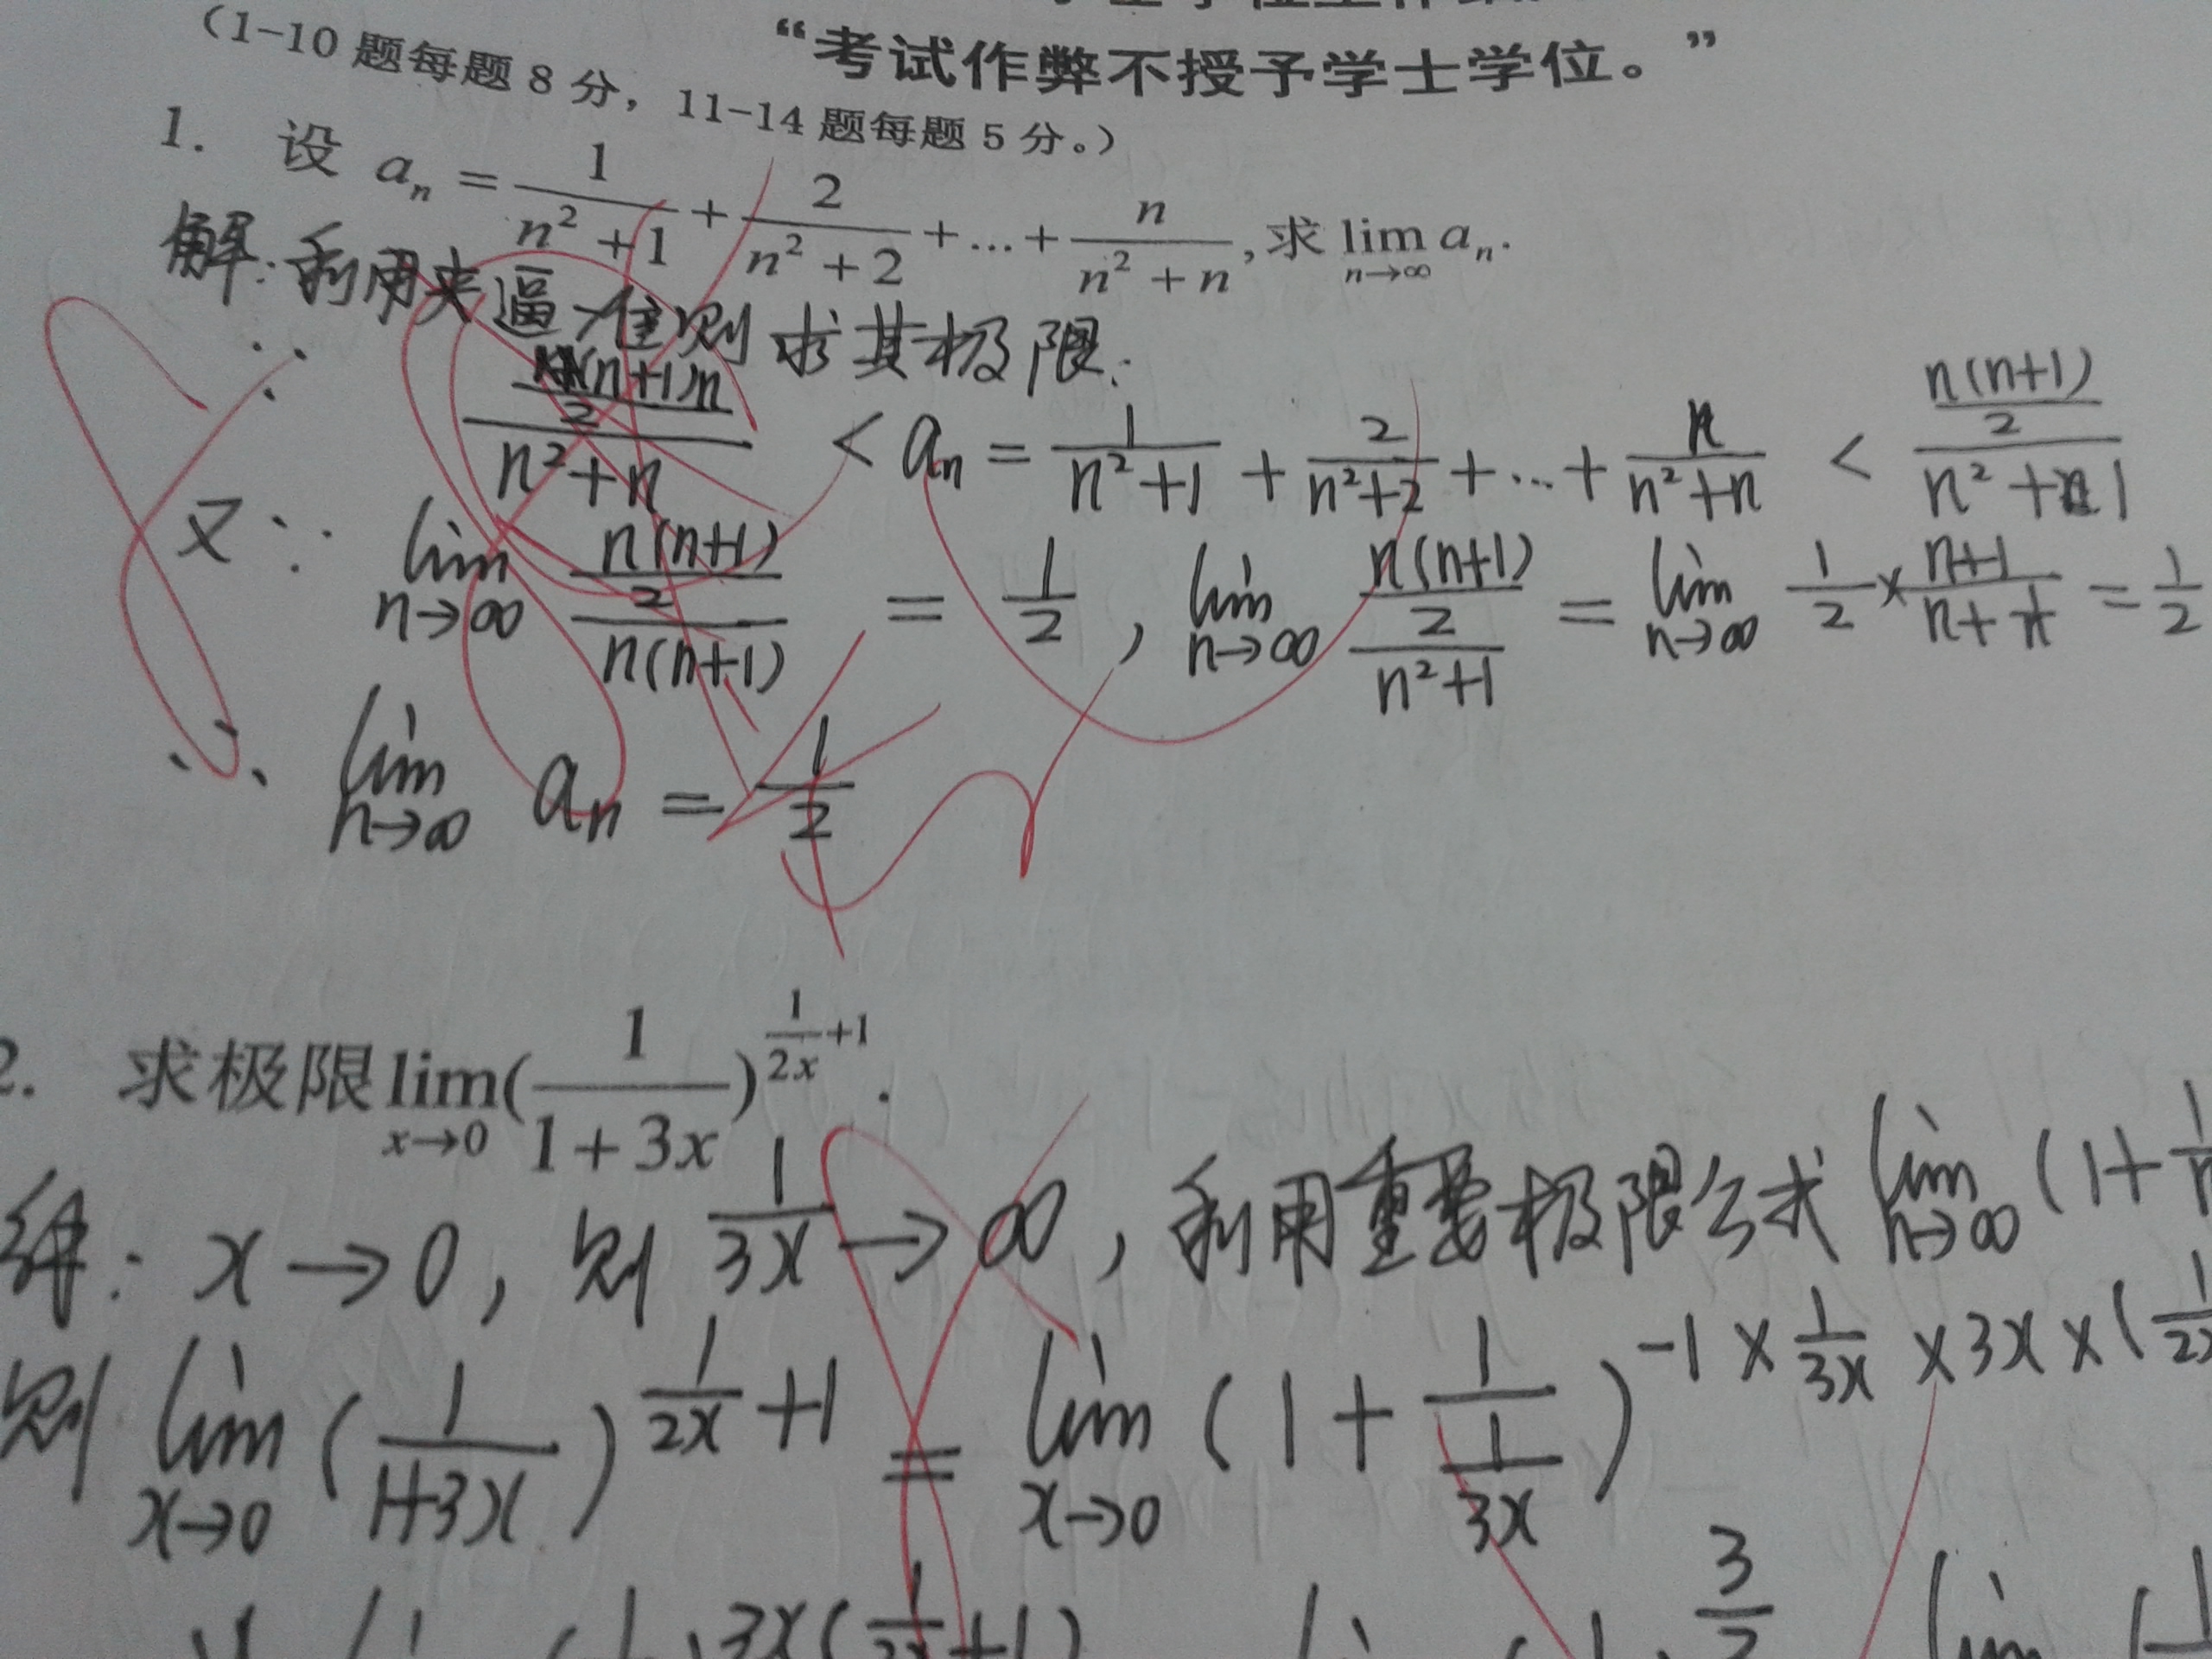 “考试作弊不授予学士学位。”
（1-10题每题8分，11-14题每题5分。）
1. 设 a_n = 1/(n²+1) + 2/(n²+2) + ... + n/(n²+n), 求 lim_{n→∞} a_n.
解: 利用夹逼准则求其极限:
∵ ((n+1)n/2)/(n²+n) < a_n = 1/(n²+1) + 2/(n²+2) + ... + n/(n²+n) < (n(n+1)/2)/(n²+1)
又∵ lim_{n→∞} (n(n+1)/2)/(n(n+1)) = 1/2, lim_{n→∞} (n(n+1)/2)/(n²+1) = lim_{n→∞} 1/2 × (n+1)/(n+1/n) = 1/2
∴ lim_{n→∞} a_n = 1/2
2. 求极限 lim_{x→0} (1/(1+3x))^{1/(2x)+1}.
解: x→0, 则 1/(3x) → ∞, 利用重要极限公式 lim_{n→∞} (1+1/n
则 lim_{x→0} (1/(1+3x))^{1/(2x)+1} = lim_{x→0} (1+1/(1/(3x)))^{-1×1/(3x)×3x×(1/(2x)
3x(1/(2x)+1) 3/2 lim